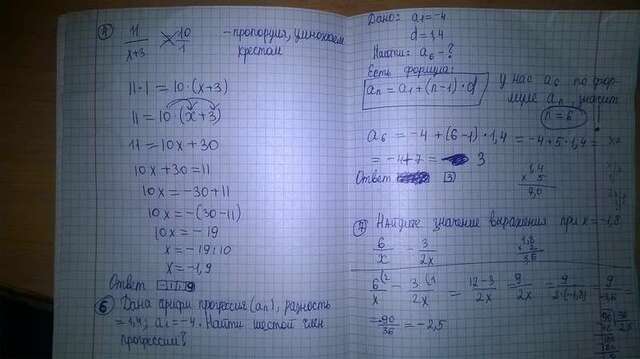 ④ 11/(x+3) = 10/1 – пропорция, умножаем крестом
11·1 = 10·(x+3)
11 = 10·(x+3)
11 = 10x+30
10x+30 = 11
10x = -30+11
10x = -(30-11)
10x = -19
x = -19:10
x = -1,9
Ответ -1,9
⑥ Дана арифм прогрессия (an), разность
= 1,4; a1 = -4. Найти шестой член
прогрессии?
Дано: a1 = -4
d = 1,4
Найти: a6 - ?
Есть формула:
an = a1+(n-1)·d
У нас a6 по фор-
муле an, значит
n = 6
a6 = -4+(6-1)·1,4 = -4+5·1,4 =
= -4+7 = 3
1,4
× 5
7,0
Ответ 3
⑦ Найдите значение выражения при x = -1,8
6/x - 3/2x
1,8
2
3,6
6/x - 3/2x = (12-3)/2x = 9/2x = 9/(2·(-1,8)) = 9/-3,6 =
= -90/36 = -2,5